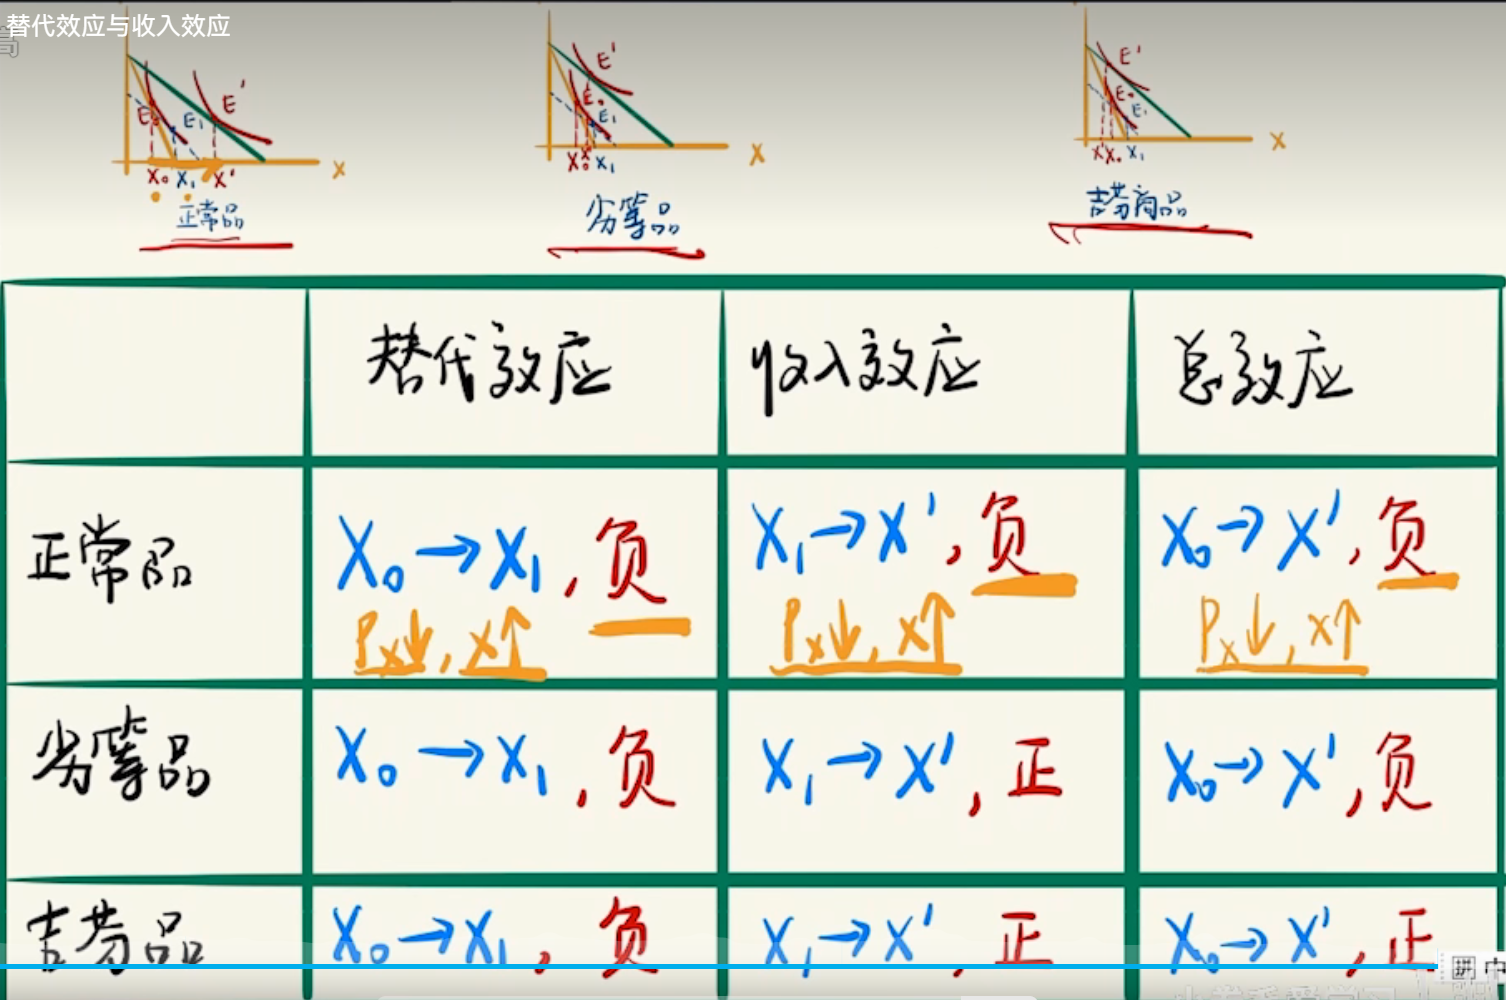 替代效应与收入效应
E₀ E₁ E'
X
X₀ X₁ X'
正常品
E' E₀ E₁
X
X₀ X' X₁
劣等品
E' E₀ E₁
X
X' X₀ X₁
吉芬商品
替代效应 收入效应 总效应
正常品 X₀→X₁,负 X₁→X',负 X₀→X',负
Pₓ↓,X↑ Pₓ↓,X↑ Pₓ↓,X↑
劣等品 X₀→X₁,负 X₁→X',正 X₀→X',负
吉芬品 X₀→X₁,负 X₁→X',正 X₀→X',正
拼 中